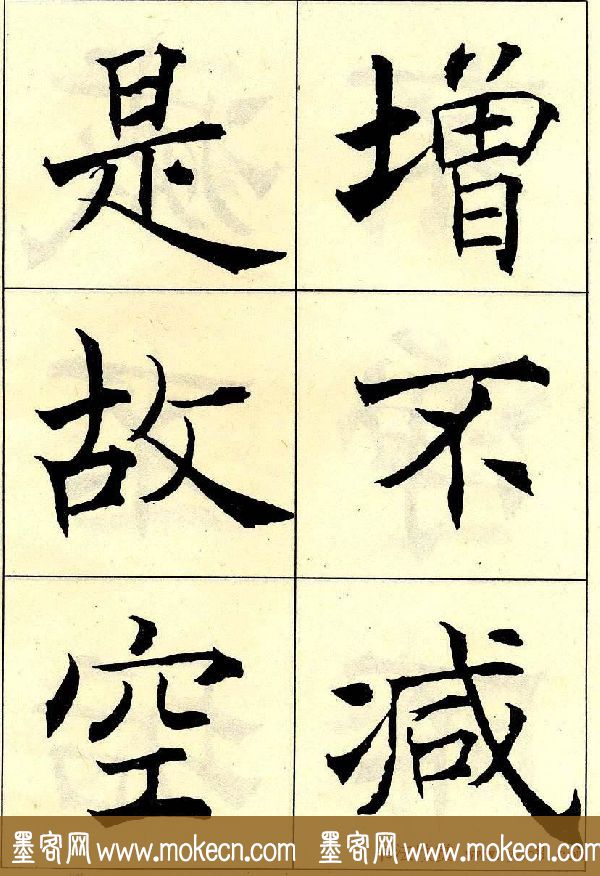 增不减
是故空
墨客网 www.mokecn.com 墨客网 www.mokecn.com